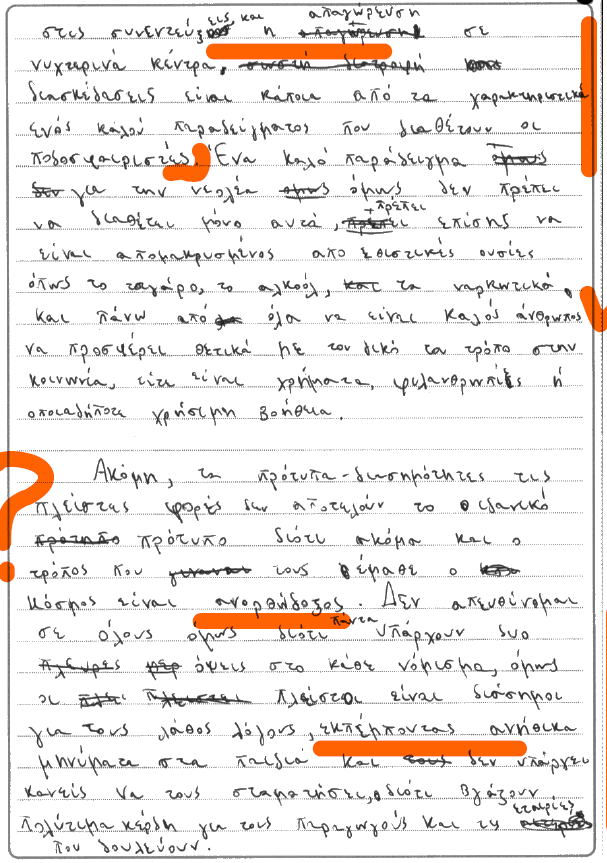 στις συνεντεύξεις, και η απαγώρευση σε
νυχτερινά κέντρα, σωστή διατροφή και
διασκέδασεις είναι κάποια από τα χαρακτηριστικά
ενός καλού παραδείγματος που διαθέτουν οι
ποδοσφαιριστές. Ένα καλό παράδειγμα όμως
δεν για την νεολέα όμως όμως δεν πρέπει
να διαθέτει μόνο αυτά, πρέπει επίσης να
είναι απομακρυσμένος απο εθιστικές ουσίες
όπως το τσιγάρο, το αλκοόλ, και τα ναρκωτικά,
και πάνω από όλα να είναι καλός άνθρωπος
να προσφέρει θετικά με τον δικό του τρόπο στην
κοινωνία, είτε είναι χρήματα, φιλανθρωπίες ή
οποιαδήποτε χρήσιμη βοήθεια.
Ακόμη, τα πρότυπα-διασημότητες τις
πλείστες φορές δεν αποτελούν το ιδανικό
πρότυπο πρότυπο διότι ακόμα και ο
τρόπος που γίνονται τους έμαθε ο
κόσμος είναι ανορθώδοξος. Δεν απευθύνομαι
σε όλους όμως διότι πάντα υπάρχουν δυο
πλευρές όψεις στο κάθε νόμισμα, όμως
οι πλείστοι είναι διάσημοι
για τους λάθος λόγους, εκπέμποντας ανήθικα
μηνύματα στα παιδιά και τους δεν υπάρχει
κανείς να τους σταματήσει, διότι βγάζουν
πολύτιμα κέρδη για τους παραγωγούς και τις εταιρίες
που δουλεύουν.